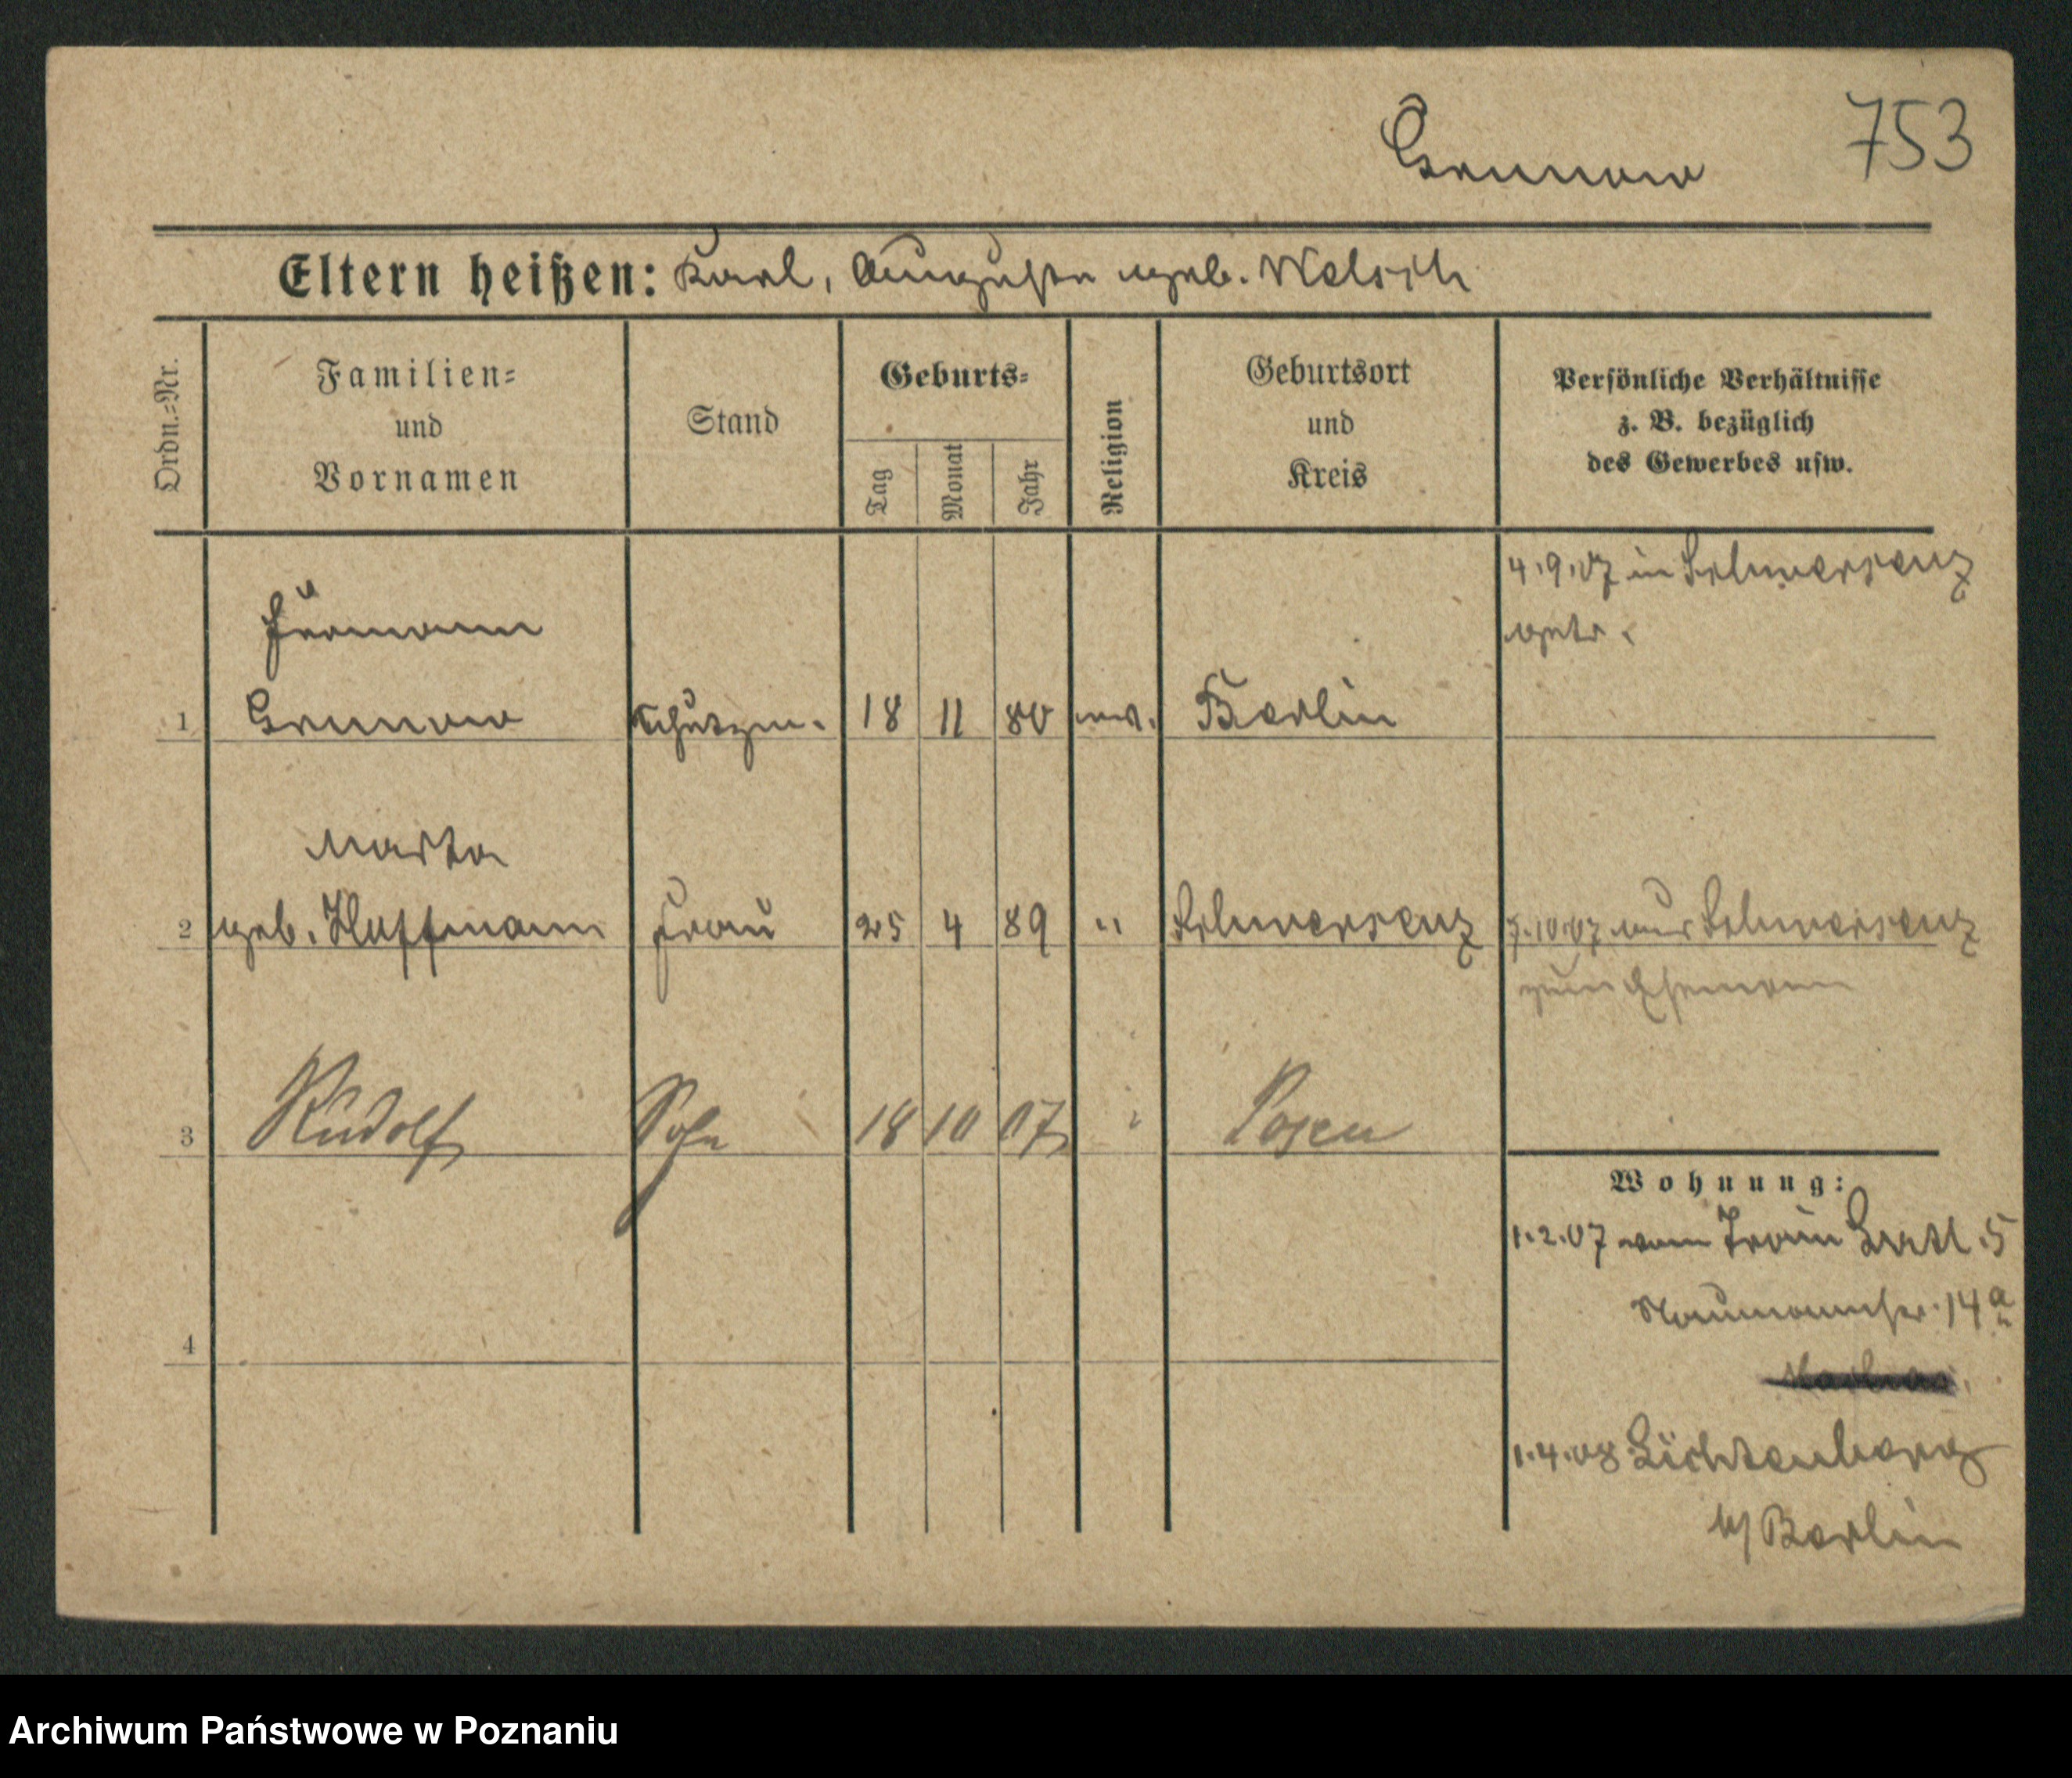 Grunow 753
Eltern heißen: Karl, Auguste geb. Welsch
Ordn.=Nr.
Familien=
und
Vornamen
Stand
Geburts=
Tag
Monat
Jahr
Religion
Geburtsort
und
Kreis
Persönliche Verhältnisse
z. B. bezüglich
des Gewerbes usw.
4.9.07 in Schwersenz
getr.
Hermann
1 Grunow Schutzm. 18 11 80 ev. Berlin
Marta
2 geb. Hoffmann Frau 25 4 89 " Schwersenz
10.07 aus Schwersenz
zum Ehemann
3 Rudolf Sohn 18 10 07 " Posen
Wohnung:
1.2.07 vom Train Batl. 5
Naumannstr. 14a
4
1.4.08 Lichtenberg
b/Berlin
Archiwum Państwowe w Poznaniu